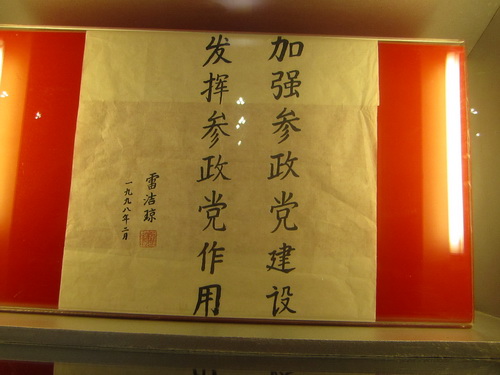 加强参政党建设
发挥参政党作用
雷洁琼
一九九八年二月